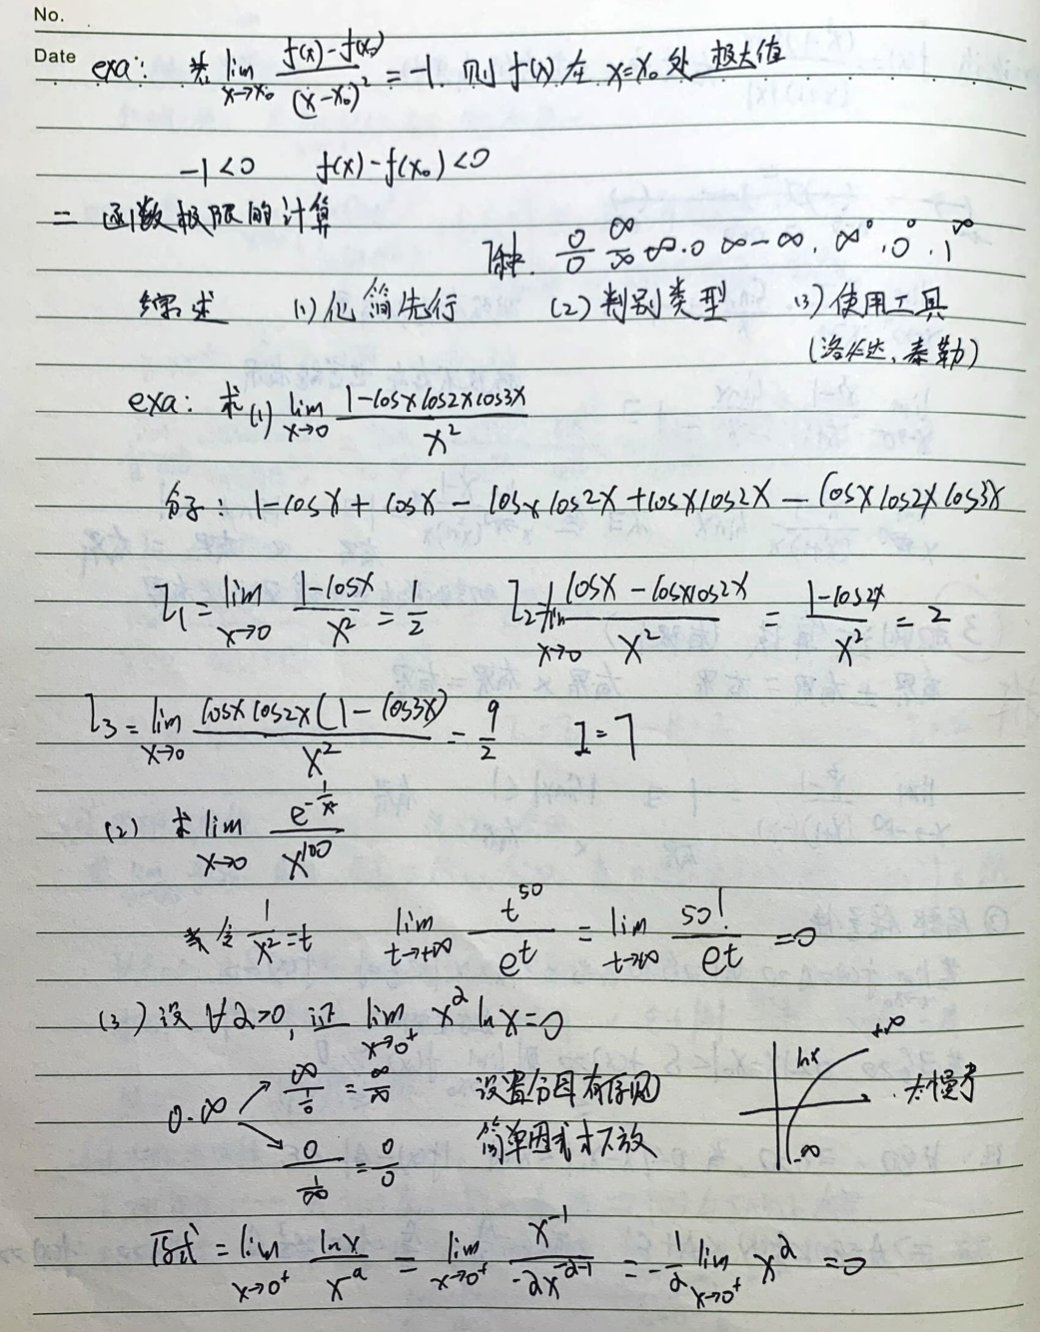 No.
Date
exa: 若 lim x→x₀ (f(x)-f(x₀))/(x-x₀)² = -1. 则 f(x) 在 x=x₀ 处 极大值
-1<0 f(x)-f(x₀)<0
二 函数极限的计算
7种. 0/0 ∞/∞ ∞·0 ∞-∞. ∞⁰. 0⁰. 1^∞
综述 (1) 化简先行 (2) 判别类型 (3) 使用工具
(洛必达、泰勒)
exa: 求 (1) lim x→0 (1-cosxcos2xcos3x)/x²
分子: 1-cosx+cosx-cosxcos2x+cosxcos2x-cosxcos2xcos3x
I₁ = lim x→0 (1-cosx)/x² = 1/2 I₂ = lim x→0 (cosx-cosxcos2x)/x² = (1-cos2x)/x² = 2
I₃ = lim x→0 (cosxcos2x(1-cos3x))/x² = 9/2 I=7
(2) 求 lim x→0 e^(-1/x²)/x¹⁰⁰
令 1/x²=t lim t→+∞ t⁵⁰/eᵗ = lim t→∞ 50!/eᵗ = 0
(3) 设 ∀α>0, 证 lim x→0⁺ x^α lnx=0
lnx +∞ -∞ 太慢了
0·∞ ∞/(1/0) = ∞/∞ 设置分母有原则
0/(1/∞) = 0/0 简单因式才下放
原式 = lim x→0⁺ lnx/x^-α = lim x→0⁺ x⁻¹/(-αx^(-α-1)) = -1/α lim x→0⁺ x^α = 0